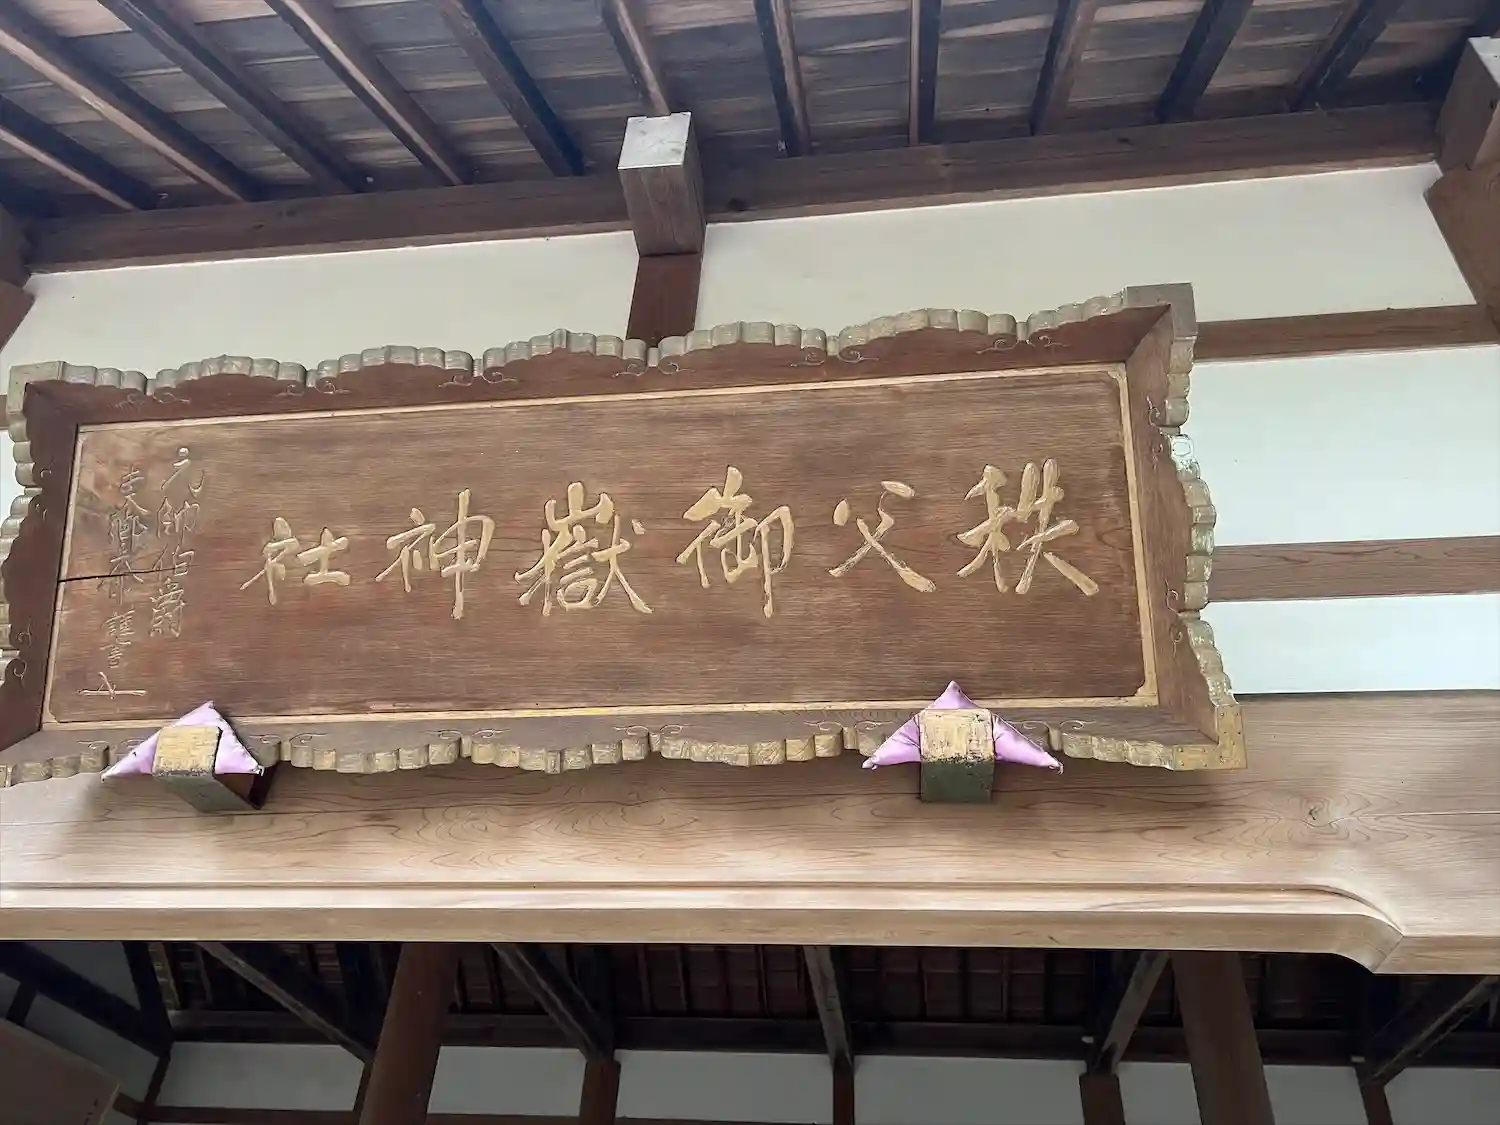 秩父御嶽神社
元帥伯爵
東郷平八郎謹書